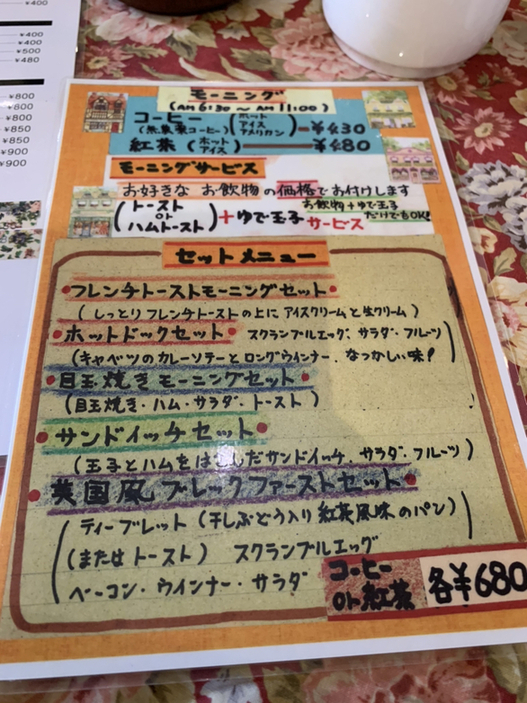 ¥400
¥400
¥400
¥500
¥480
¥800
¥800
¥800
¥850
¥850
¥900
¥900
モーニング
(AM 6:30 〜 AM 11:00)
コーヒー (ホット アイス アメリカン) ¥430
(無農薬コーヒー)
紅茶 (ホット アイス) ¥480
モーニングサービス
お好きな お飲物の価格でお付けします
(トースト or ハムトースト) + ゆで玉子 サービス
お飲物+ゆで玉子だけでもOK!
セットメニュー
・フレンチトーストモーニングセット・
(しっとりフレンチトーストの上にアイスクリームと生クリーム)
・ホットドックセット・ スクランブルエッグ・サラダ・フルーツ
(キャベツのカレーソテーとロングウインナー、なつかしい味!)
・目玉焼きモーニングセット・
(目玉焼き・ハム・サラダ・トースト)
・サンドイッチセット・
(玉子とハムをはさんだサンドイッチ、サラダ・フルーツ)
・英国風ブレックファーストセット・
ティーブレット (干しぶどう入り紅茶風味のパン)
(または トースト) スクランブルエッグ
ベーコン・ウインナー・サラダ
コーヒー or 紅茶 各¥680